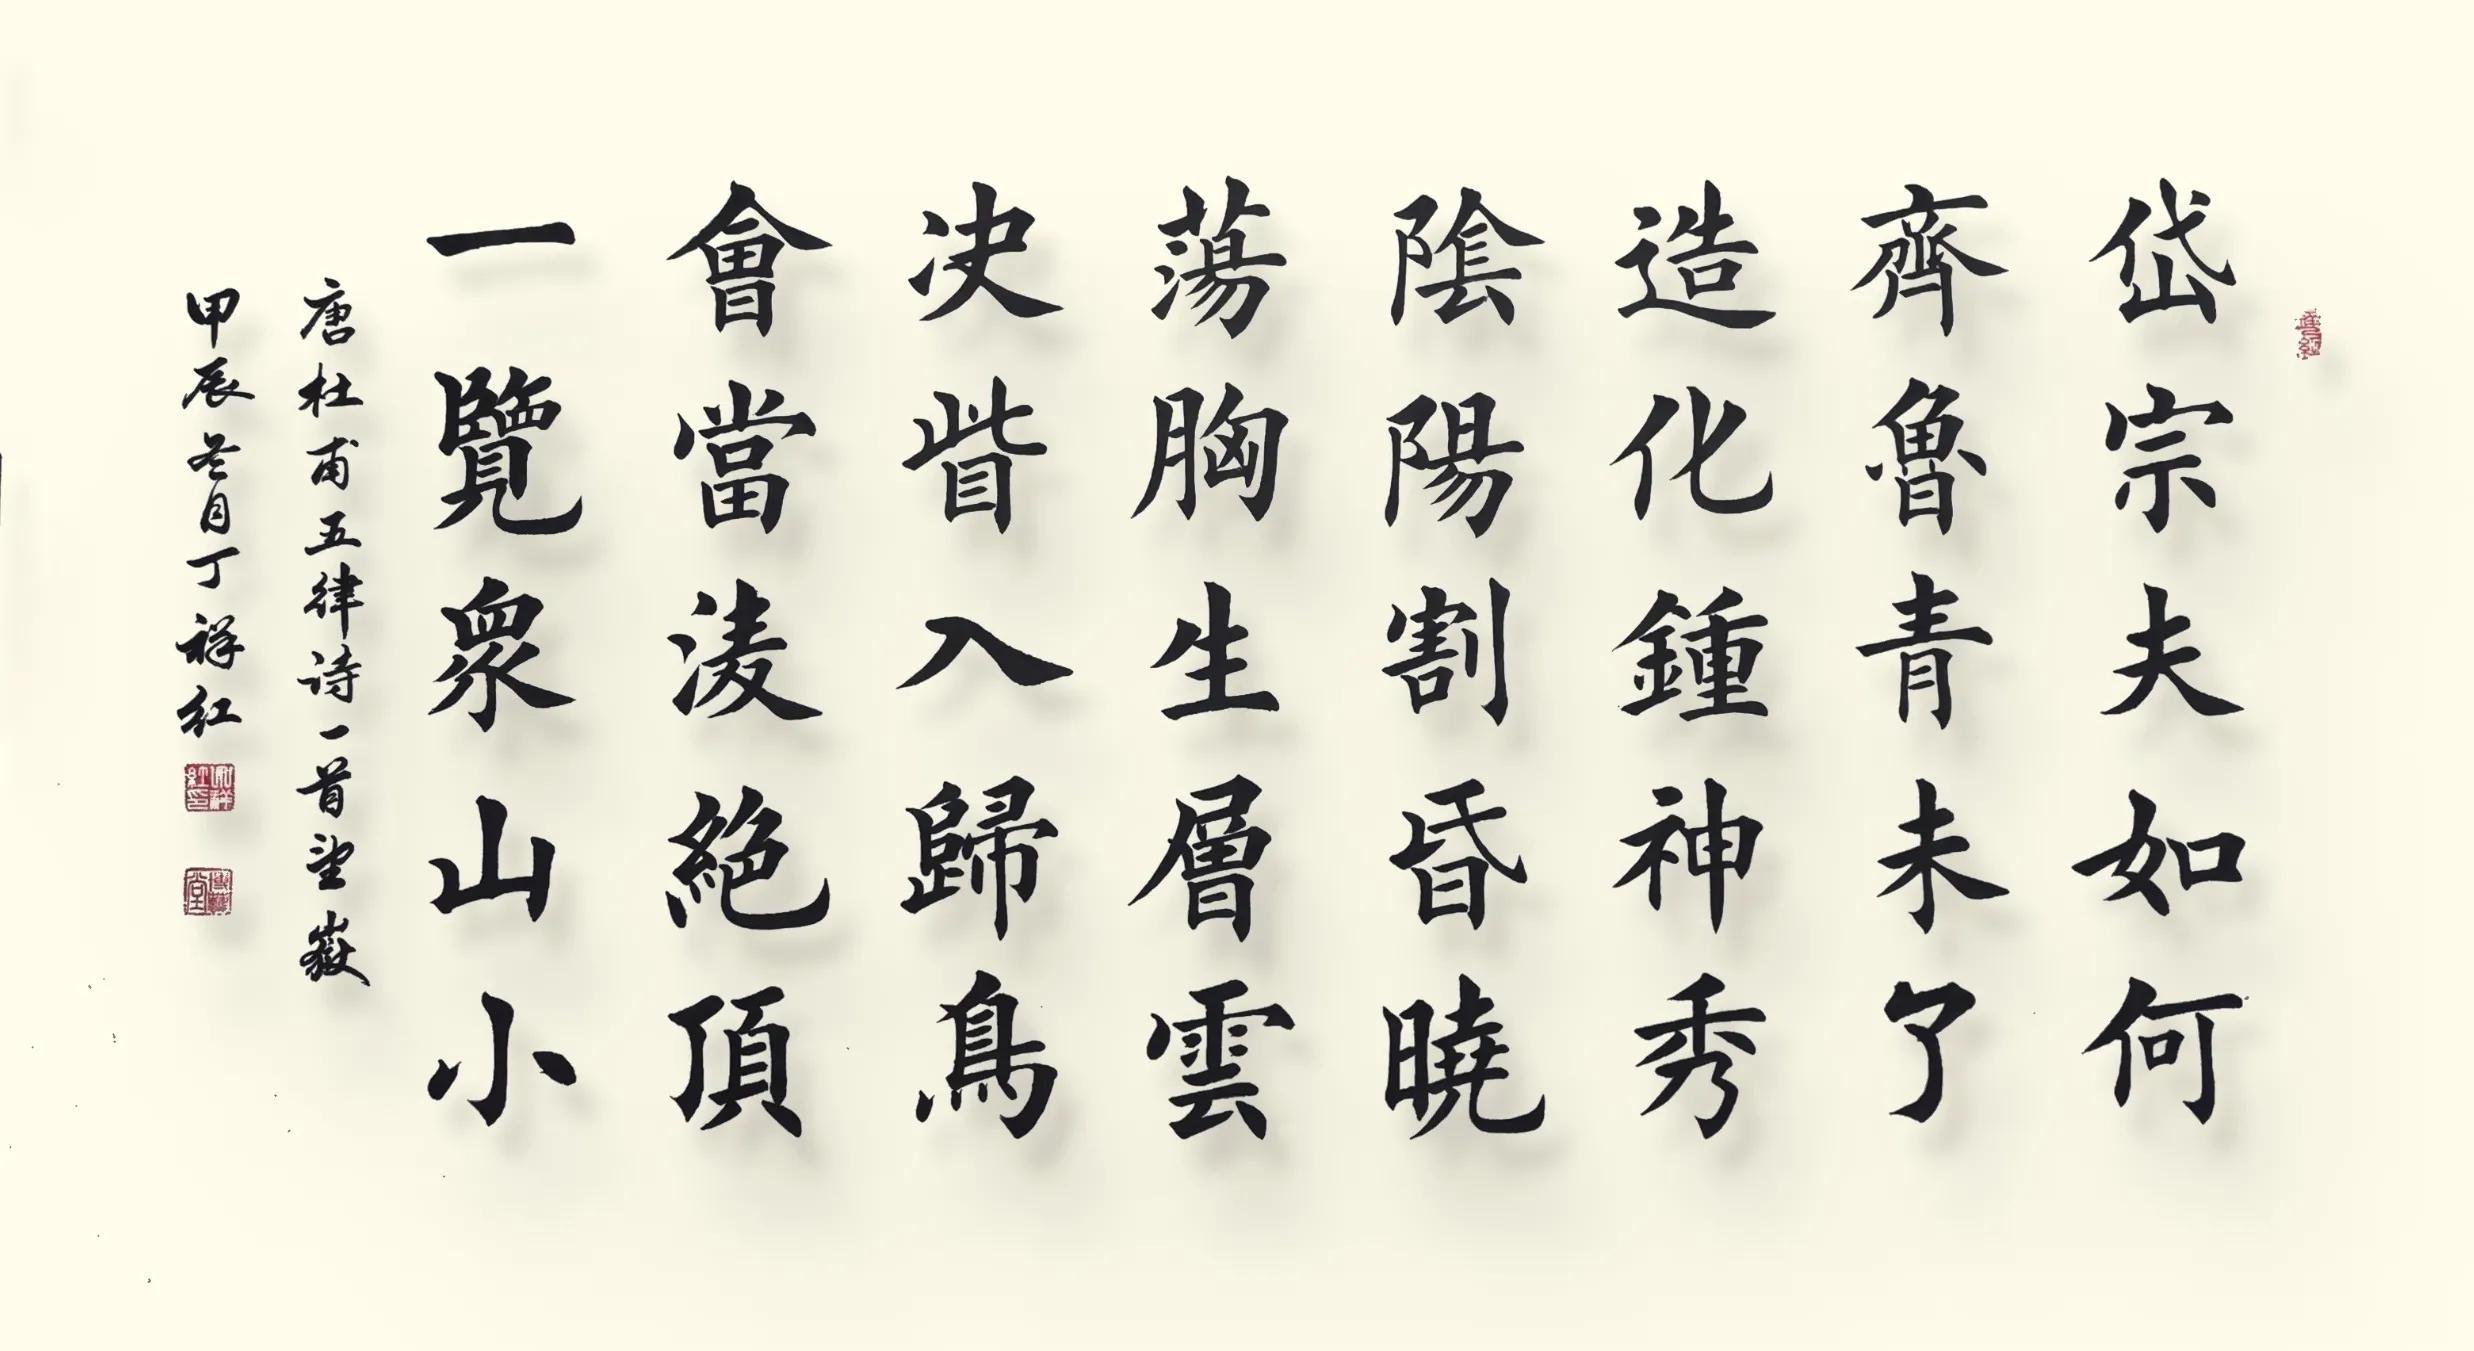 岱宗夫如何
齊魯青未了
造化鍾神秀
陰陽割昏曉
蕩胸生層雲
決眥入歸鳥
會當淩絕頂
一覽衆山小
唐杜甫五律诗一首望嶽
甲辰冬月丁祥红